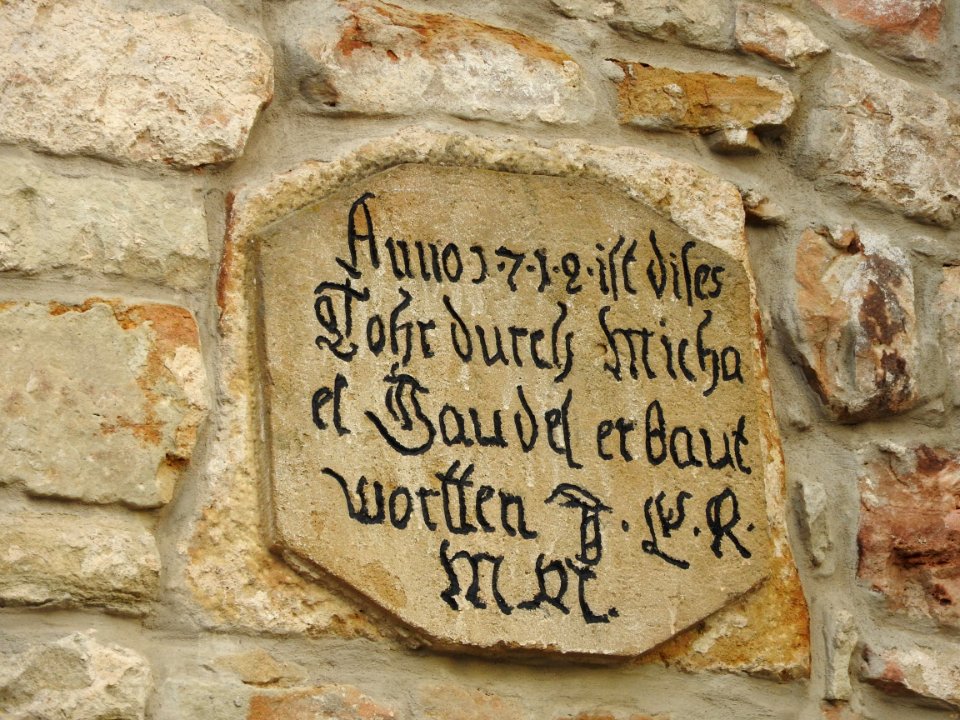 Anno 1·7·1·2·ist dises
Tohr durch Micha
el Gaudel erbaut
wortten . . R.
M